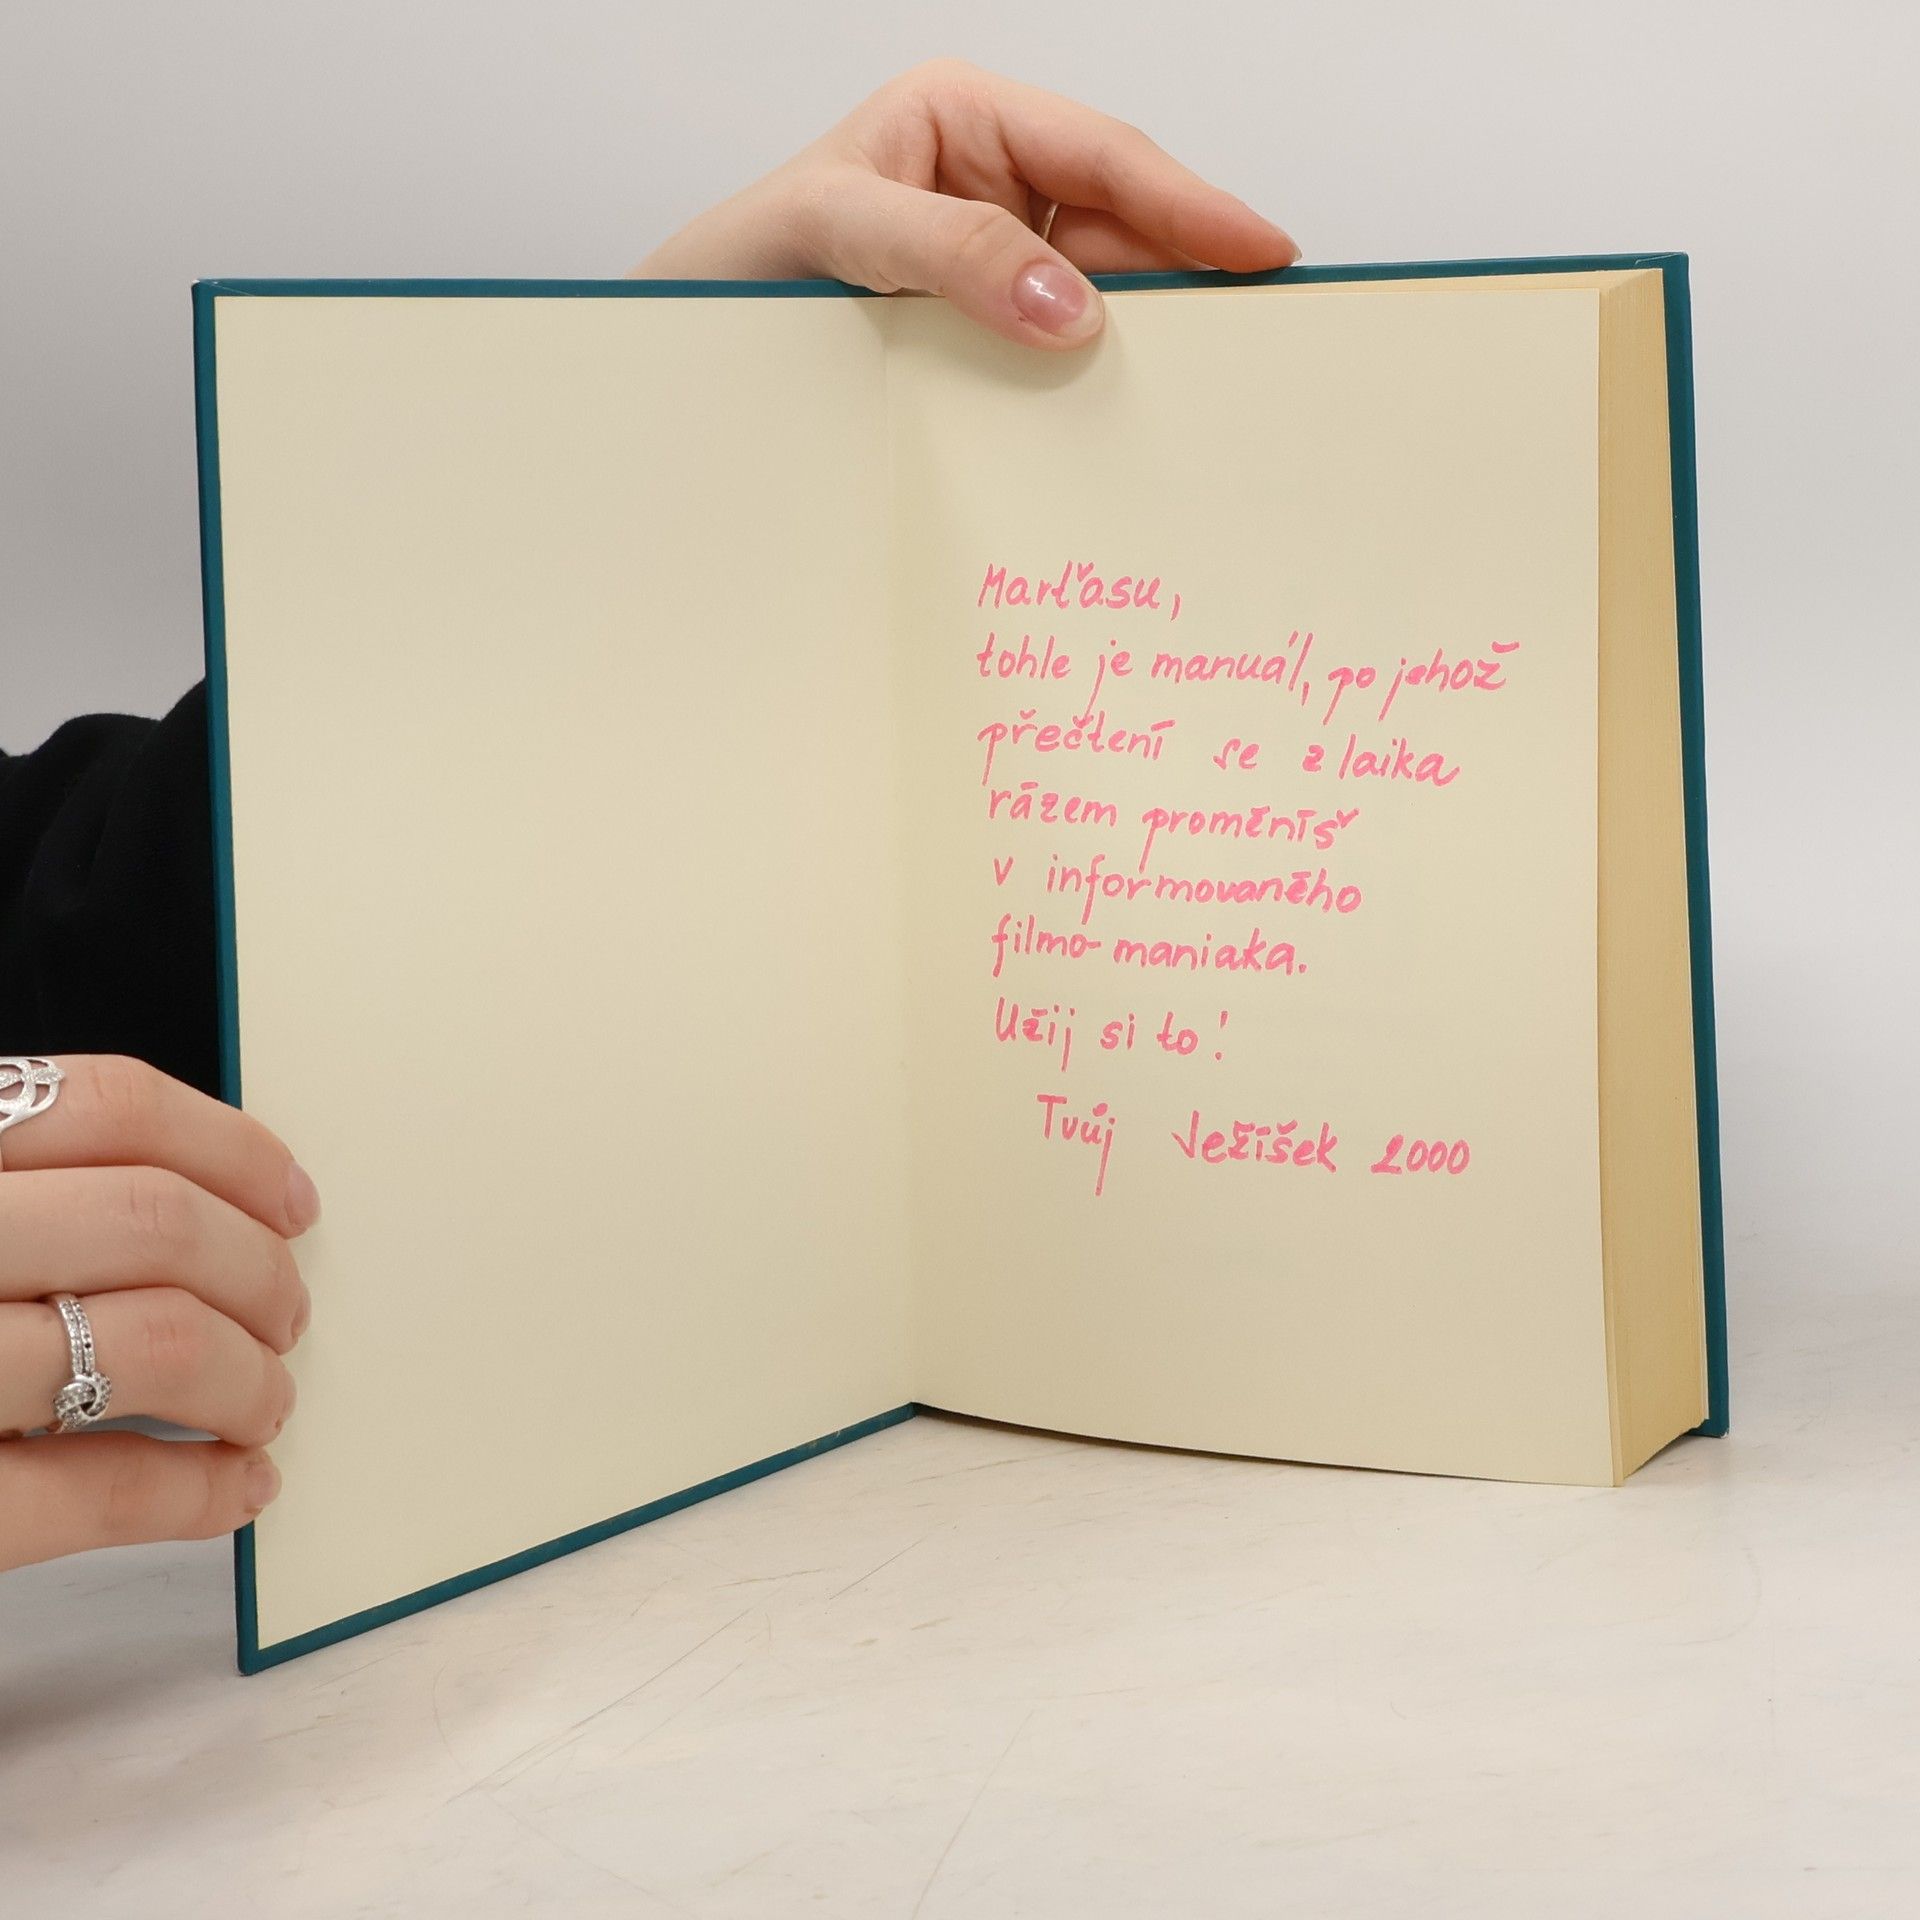 Marťasu,
tohle je manuál, po jehož
přečtení se z laika
rázem proměníš
v informovaného
filmo-maniaka.
Užij si to!
Tvůj Ježíšek 2000